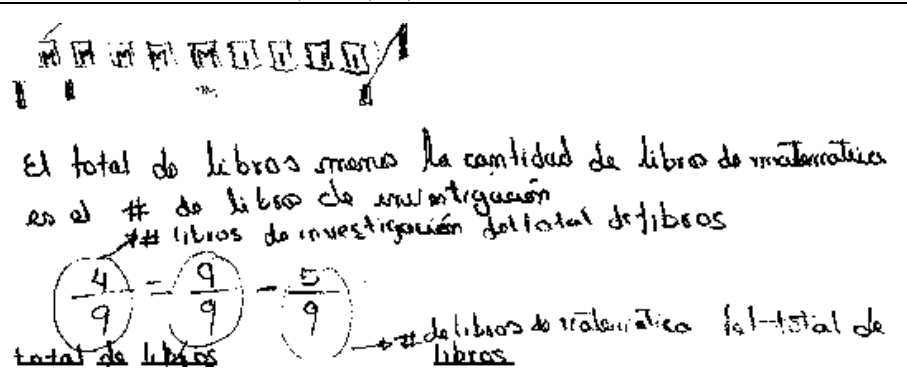 M M M M M I I I I
El total de libros menos la cantidad de libros de matematica
es el # de libros de investigación
# libros de investigación del total de libros
4/9 = 9/9 - 5/9
# de libros de matematica del total de
total de libros libros